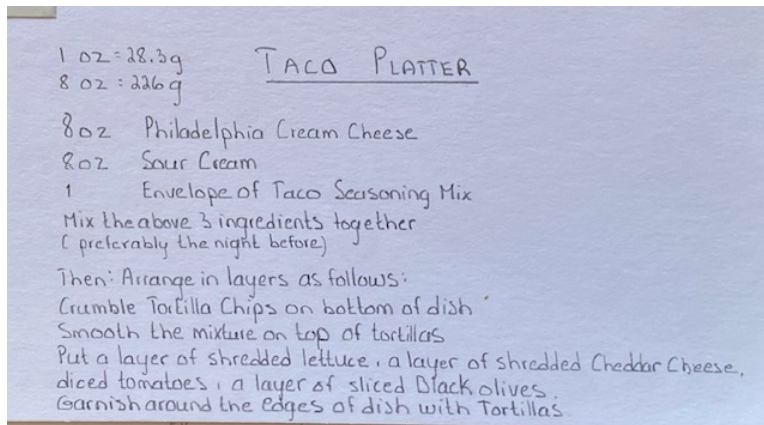 1 oz = 28.3g
TACO PLATTER
8 oz : 226g
8oz Philadelphia Cream Cheese
8oz Sour Cream
1 Envelope of Taco Seasoning Mix
Mix the above 3 ingredients together
( preferably the night before)
Then: Arrange in layers as follows:
Crumble Tortilla Chips on bottom of dish
Smooth the mixture on top of tortillas
Put a layer of shredded lettuce, a layer of shredded Cheddar Cheese,
diced tomatoes, a layer of sliced Black olives.
Garnish around the edges of dish with Tortillas